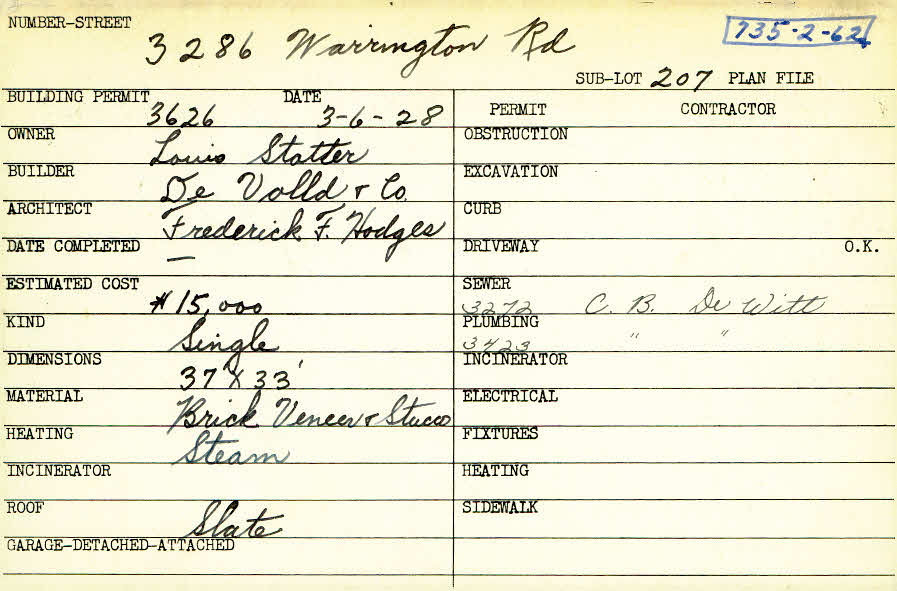 NUMBER-STREET
3286 Warrington Rd
735-2-62
SUB-LOT 207 PLAN FILE
BUILDING PERMIT 3626 DATE 3-6-28
OWNER Louis Statter
BUILDER De Volld & Co.
ARCHITECT Frederick F. Hodges
DATE COMPLETED —
ESTIMATED COST $15,000
KIND Single
DIMENSIONS 37' X 33'
MATERIAL Brick Veneer & Stucco
HEATING Steam
INCINERATOR
ROOF Slate
GARAGE-DETACHED-ATTACHED
PERMIT CONTRACTOR
OBSTRUCTION
EXCAVATION
CURB
DRIVEWAY O.K.
SEWER 3272 C. B. De Witt
PLUMBING 3423 " "
INCINERATOR
ELECTRICAL
FIXTURES
HEATING
SIDEWALK